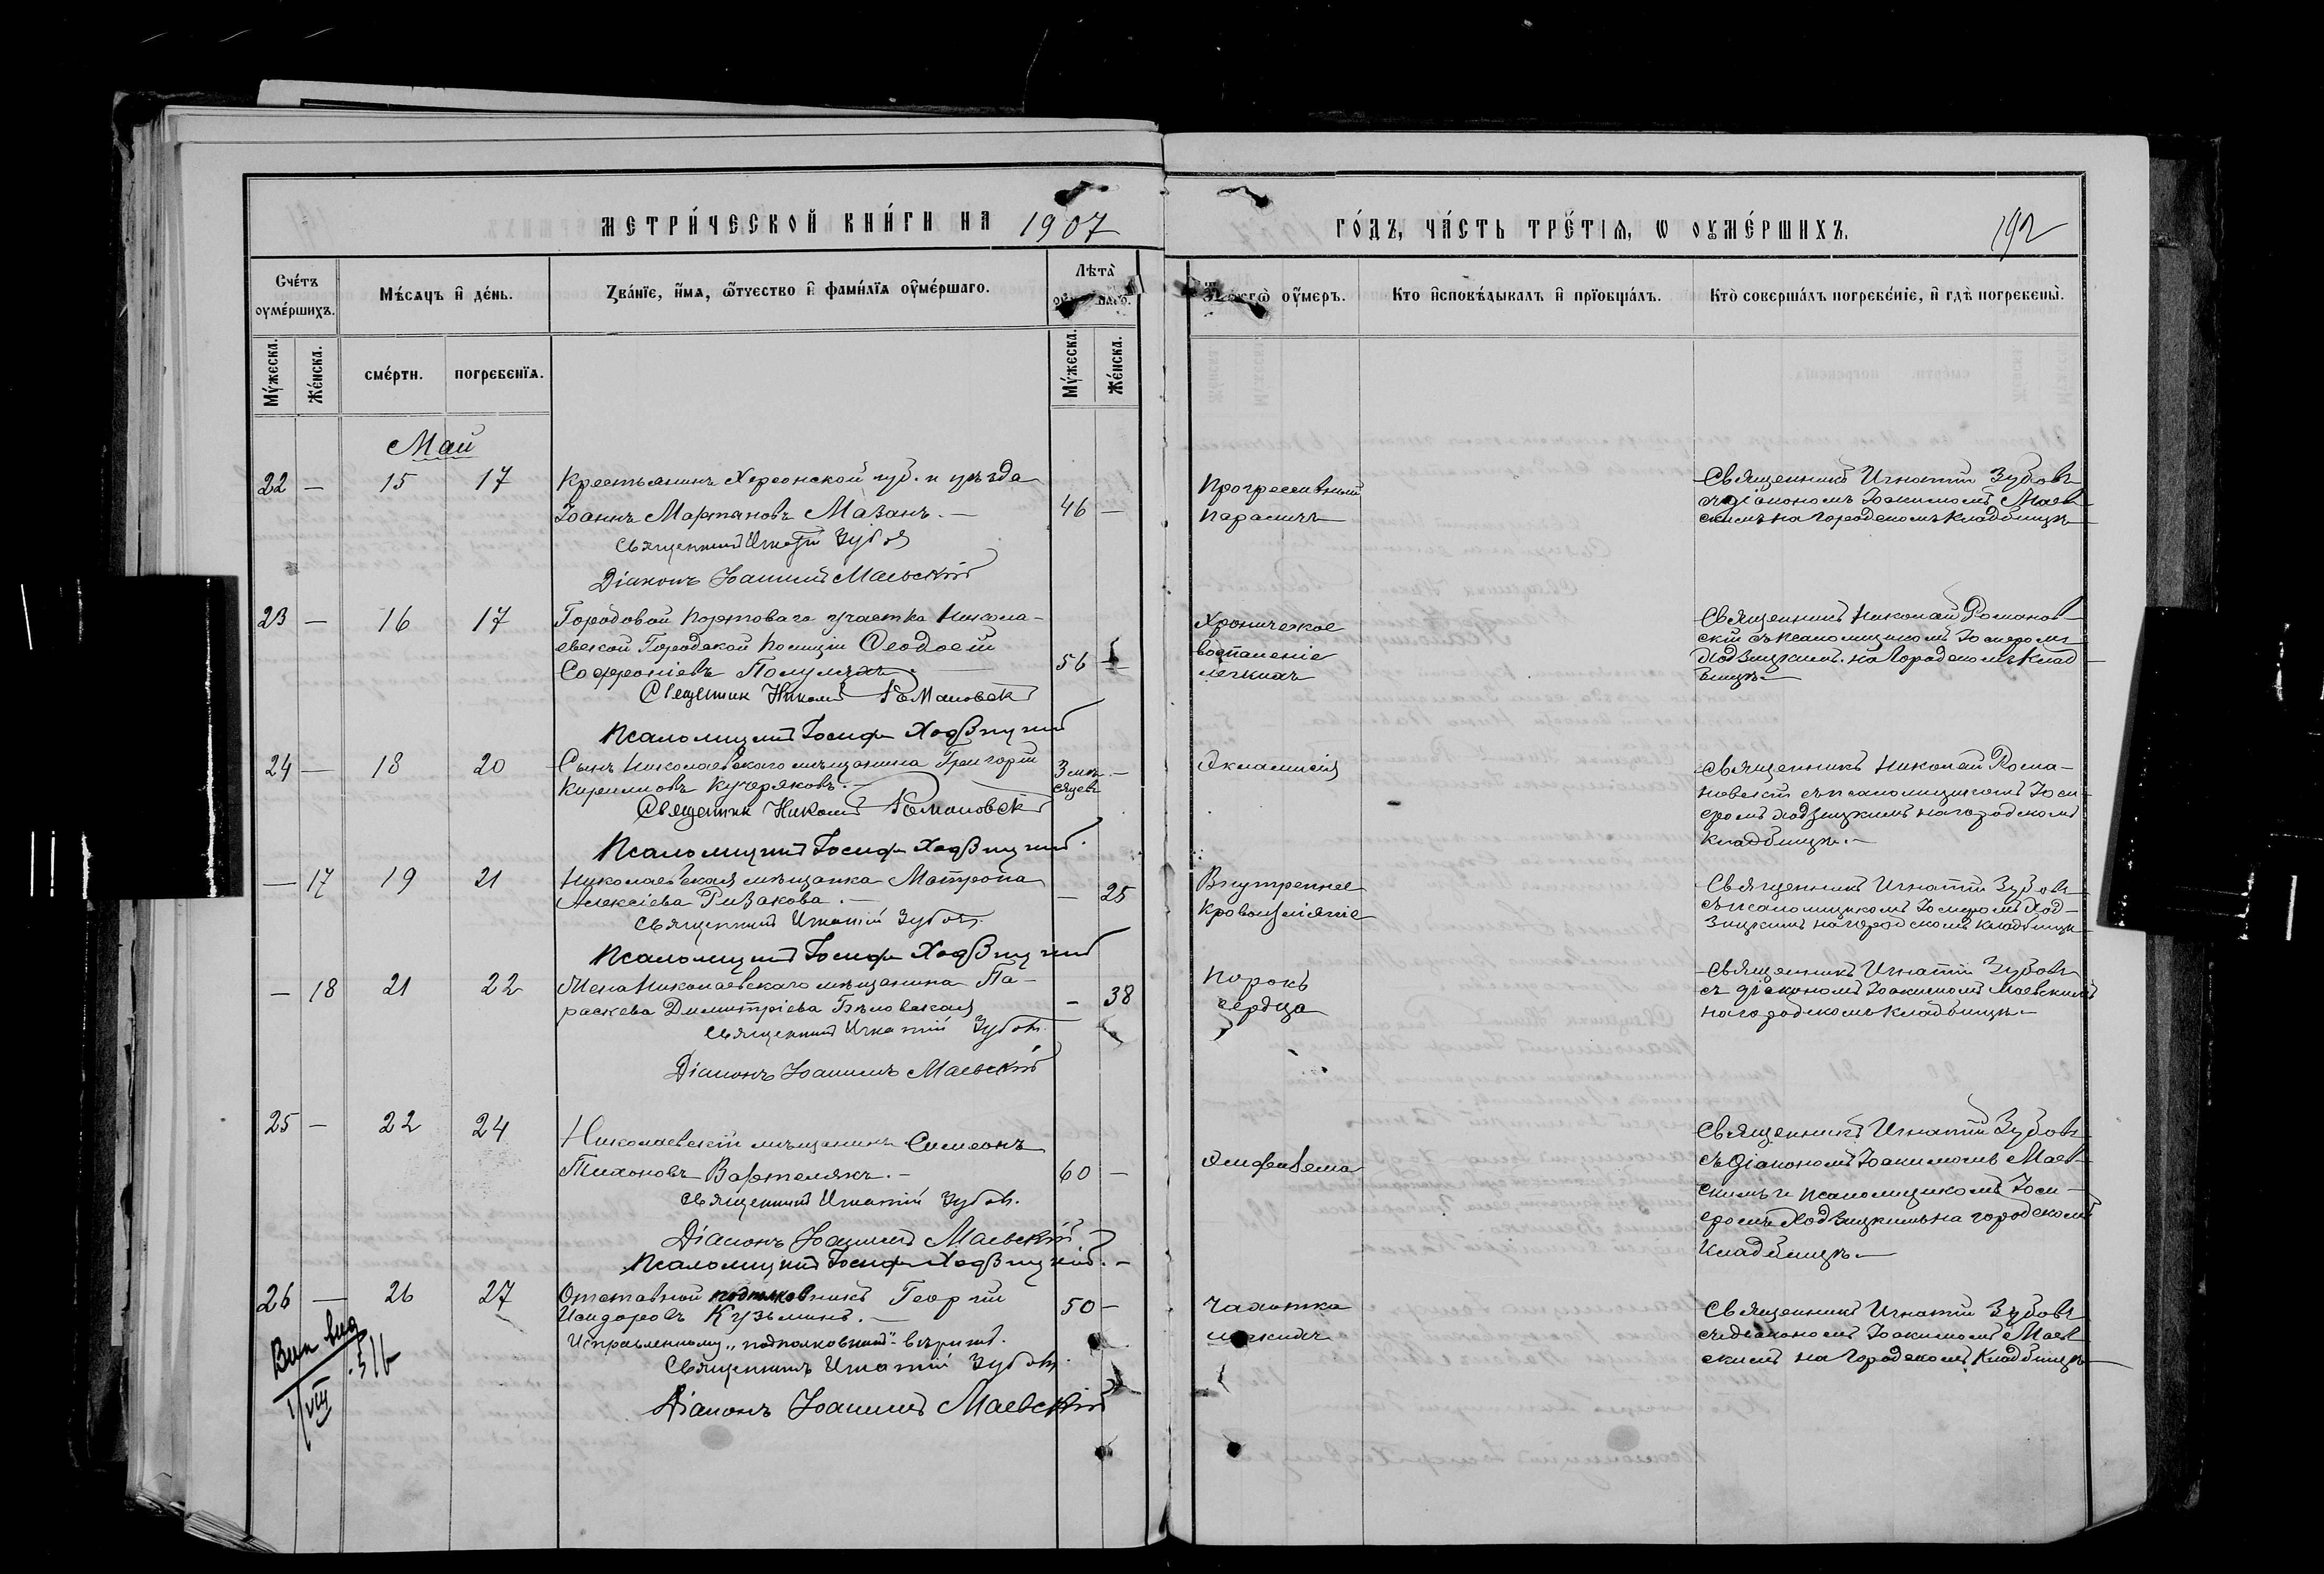 МЕТРИ́ЧЕСКОЙ КНИ́ГИ НА 1907
ГО́ДЪ, ЧА́СТЬ ТРЕ́ТІѦ, Ѡ ОУМЕ́РШИХЪ.
192
Сче́тъ оумершихъ.
Мѣ́сяцъ и де́нь.
Зва́ніе, и́мѧ, ѻ́тчество и фами́лїѧ оуме́ршаго.
Лѣта̀
оумер
Кто исповѣ́дывалъ и прїобща́лъ.
Кто̀ соверша́лъ погребе́ніе, и гдѣ̀ погребены̀.
Му́жеска.
Же́нска.
сме́рти.
погребенїѧ.
Му́жеска.
Же́нска.
Май
22 — 15 17
Крестьянинъ Херсонской губ. и уѣзда
Іоаннъ Мартиновъ Мазанъ. —
46 —
Священникъ Игнатій Зубовъ
Діаконъ Іоакимъ Маевскій
Прогрессивный
параличъ
Священникъ Игнатій Зубовъ
съ діакономъ Іоакимомъ Маев-
скимъ на городскомъ кладбищѣ
23 — 16 17
Городовой портоваго участка Никола-
евской Городской полиціи Ѳеодосій
Софроніевъ
56 —
Священник Николай Романовскій
Псаломщикъ Іосифъ Ходзицкій
Хроническое
воспаленіе
легкихъ
Священникъ Николай Романов-
скій съ псаломщикомъ Іосифомъ
Ходзицкимъ на городскомъ клад-
бищѣ —
24 — 18 20
Сынъ Николаевскаго мѣщанина Григорій
Кирилловъ Кучеряковъ. —
3 мѣ-
сяцевъ
—
Священник Николай Романовскій
Псаломщикъ Іосифъ Ходзицкій.
Экламписія
Священникъ Николай Рома-
новскій съ псаломщикомъ Іоси-
фомъ Ходзицкимъ на городскомъ
кладбищѣ. —
— 17 19 21
Николаевская мѣщанка Матрона
Алексіева Ризакова. —
— 25
Священникъ Игнатій Зубовъ.
Псаломщикъ Іосифъ Ходзицкій
Внутреннее
кровоизліяніе
Священникъ Игнатій Зубовъ
съ псаломщикомъ Іосифомъ Ход-
зицкимъ на городскомъ кладбищѣ
— 18 21 22
Жена Николаевскаго мѣщанина Па-
раскева Димитріева Бѣловская
— 38
Священникъ Игнатій Зубовъ.
Діаконъ Іоакимъ Маевскій
Порокъ
сердца
Священникъ Игнатій Зубовъ
съ діакономъ Іоакимомъ Маевскимъ
на городскомъ кладбищѣ. —
25 — 22 24
Николаевскій мѣщанинъ Симеонъ
Тихоновъ Вартелякъ. —
60 —
Священникъ Игнатій Зубовъ.
Діаконъ Іоакимъ Маевскій
Псаломщикъ Іосифъ Ходзицкій. —
Эмфизема
Священникъ Игнатій Зубовъ
съ діакономъ Іоакимомъ Маев-
скимъ и псаломщикомъ Іоси-
фомъ Ходзицкимъ на городскомъ
кладбищѣ. —
26 — 26 27
Отставной подполковникъ Георгій
Исидоровъ Кузьминъ. —
50 —
Исправленному „подполковникъ“ вѣрить.
Священникъ Игнатій Зубовъ.
Діаконъ Іоакимъ Маевскій
Чахотка
легкихъ
Священникъ Игнатій Зубовъ
съ діакономъ Іоакимомъ Маев-
скимъ на городскомъ кладбищѣ —